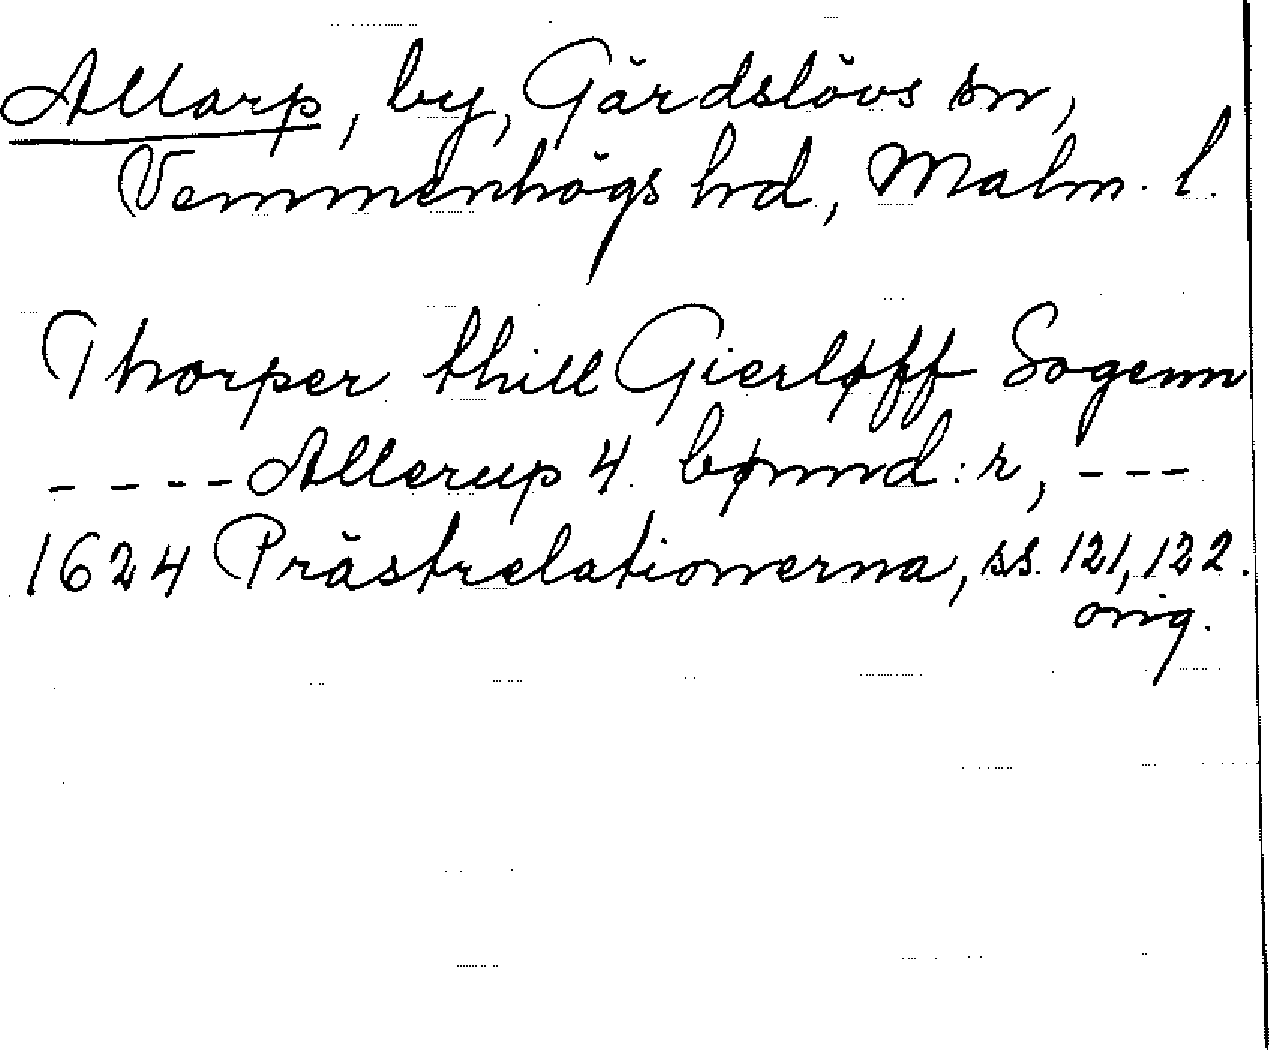 Allarp, by, Gärdslövs sn,
Vemmenhögs hd, Malm. l.
Thorper thill Gierløff Sogenn
---- Allerup 4. bønnd:r, ---
1624 Prästrelationerna, ss. 121, 122.
orig.